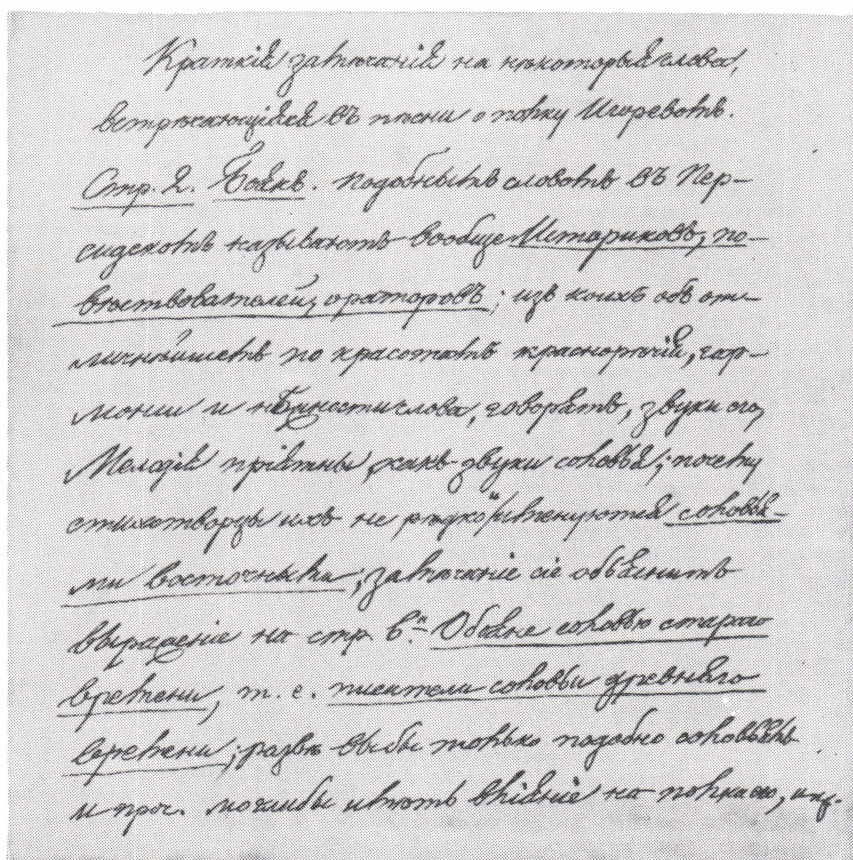 Краткія замѣчанія на нѣкоторыя слова,
встрѣчающіяся въ пѣсни о полку Игоревомъ.
Стр. 2. Боянъ. подобнымъ словомъ въ Пер-
сидскомъ называютъ вообще Историковъ, по-
вѣствователей, ораторовъ; изъ коихъ объ от-
личнѣйшемъ по красотамъ краснорѣчія, гар-
моніи и нѣжности слова, говорятъ, звуки его
Мелодіи пріятны, какъ звуки соловья; почему
стихотворцы ихъ не рѣдко именуются соловья-
ми восточными; замѣчаніе сіе объяснитъ
выраженіе на стр. 6.й Обояне соловью стараго
времени, т. е. писатели соловьи древняго
времени; развѣ вы бы только подобно соловьямъ
и проч. могли бы имѣть вліяніе на полки его,